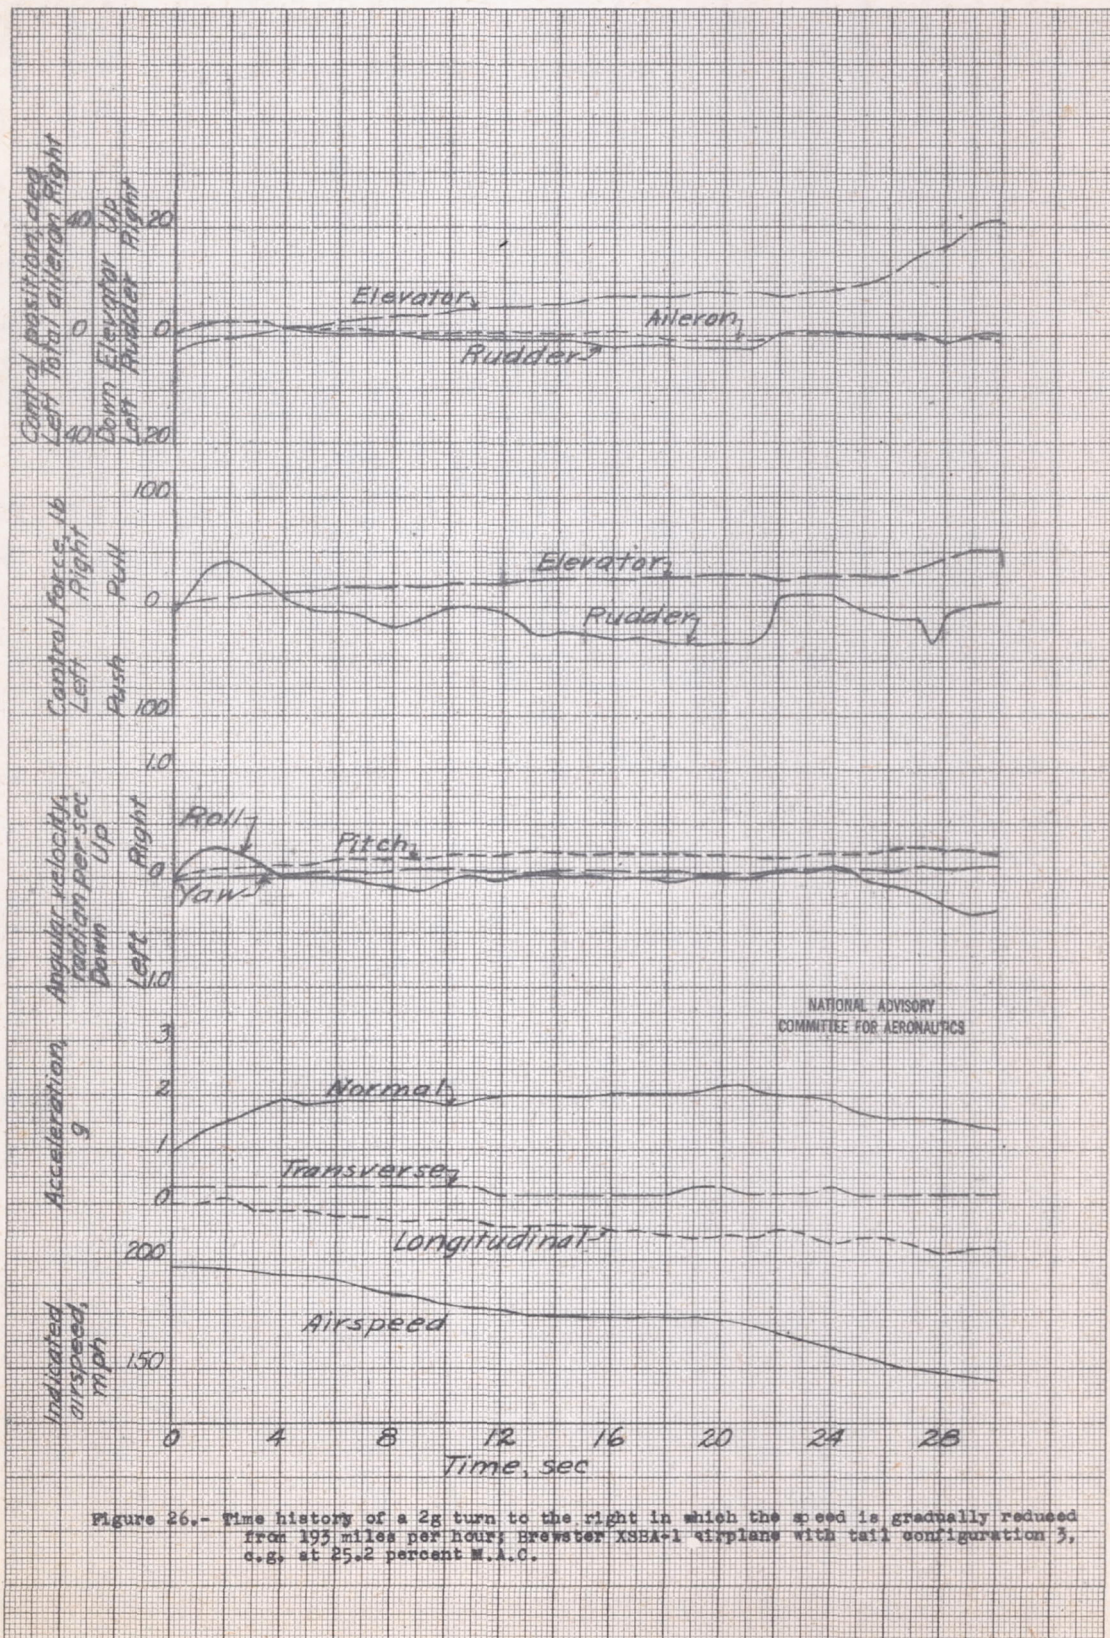 Control position, deg
Left Total aileron Right
40
0
40
Down Elevator Up
Left Rudder Right
20
0
20
Elevator
Aileron
Rudder
Control Force, lb
Left Right
Push Pull
100
0
100
Elevator
Rudder
Angular velocity,
radian per sec
Down Up
Left Right
1.0
0
1.0
Roll
Pitch
Yaw
NATIONAL ADVISORY
COMMITTEE FOR AERONAUTICS
Acceleration,
g
3
2
1
0
Normal
Transverse
Longitudinal
Indicated
airspeed,
mph
200
150
Airspeed
0 4 8 12 16 20 24 28
Time, sec
Figure 26.- Time history of a 2g turn to the right in which the speed is gradually reduced
from 193 miles per hour; Brewster XSBA-1 airplane with tail configuration 3,
c.g. at 25.2 percent M.A.C.